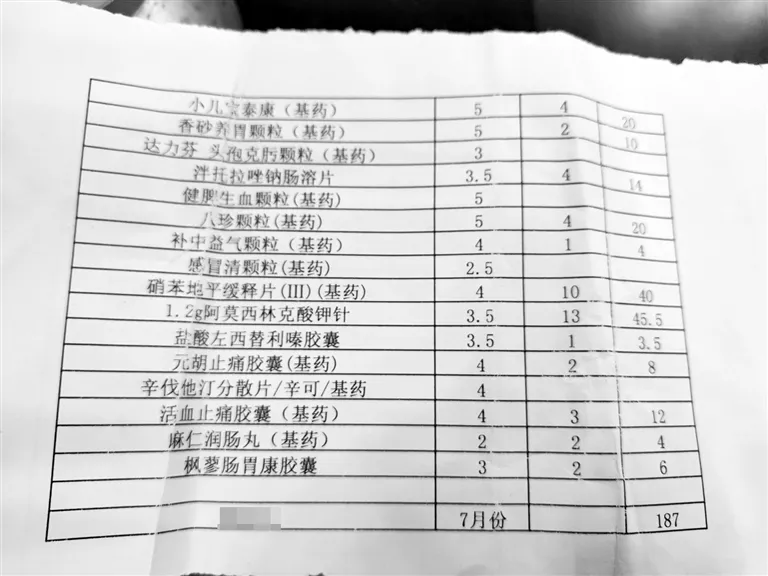 小儿 泰康（基药） 5 4 20
香砂养胃颗粒（基药） 5 2 10
达力芬 头孢克肟颗粒（基药） 3
泮托拉唑钠肠溶片 3.5 4 14
健脾生血颗粒(基药) 5
八珍颗粒(基药) 5 4 20
补中益气颗粒（基药） 4 1 4
感冒清颗粒(基药) 2.5
硝苯地平缓释片(III)(基药) 4 10 40
1.2g阿莫西林克酸钾针 3.5 13 45.5
盐酸左西替利嗪胶囊 3.5 1 3.5
元胡止痛胶囊(基药) 4 2 8
辛伐他汀分散片/辛可/基药 4
活血止痛胶囊（基药） 4 3 12
麻仁润肠丸（基药） 2 2 4
枫蓼肠胃康胶囊 3 2 6
7月份 187